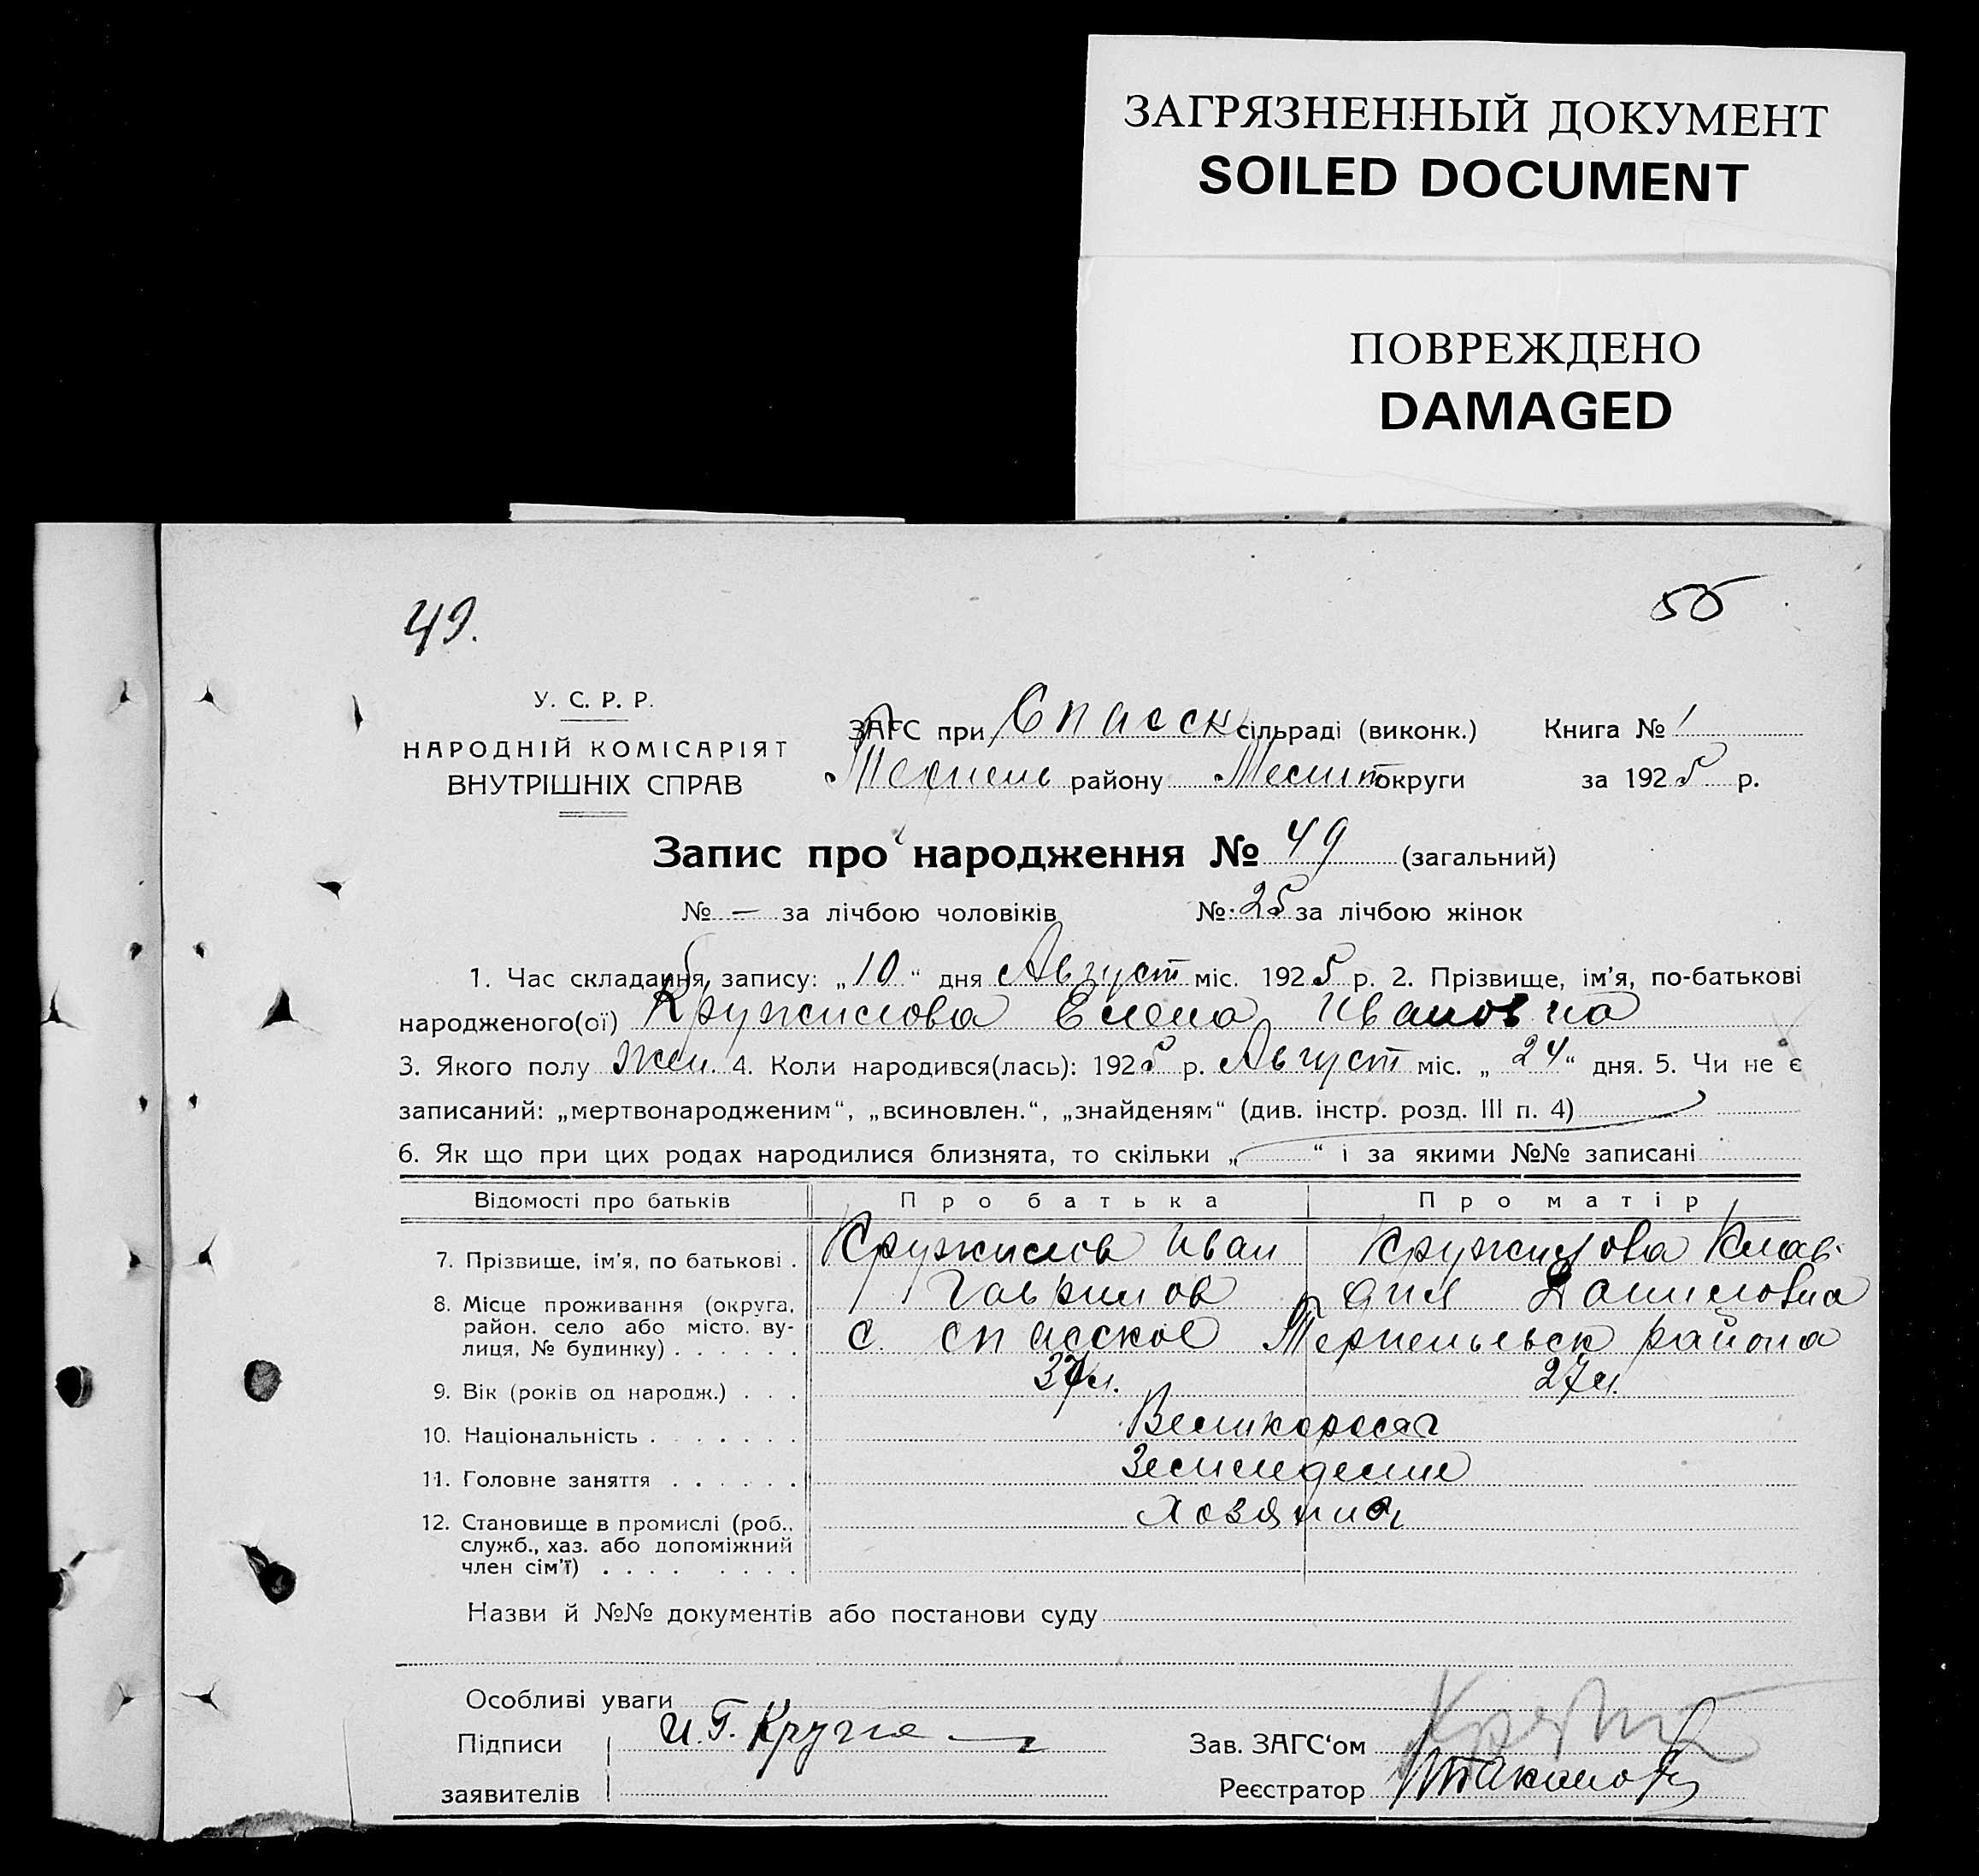 ЗАГРЯЗНЕННЫЙ ДОКУМЕНТ
SOILED DOCUMENT
ПОВРЕЖДЕНО
DAMAGED
49.
У. С. Р. Р.
НАРОДНІЙ КОМІСАРІЯТ
ВНУТРІШНІХ СПРАВ
ЗАГС при Спасск сільраді (виконк.) Книга № 1
району округи за 1925 р.
Запис про народження № 49 (загальний)
№ — за лічбою чоловіків № 25 за лічбою жінок
1. Час складання запису: „10“ дня Август міс. 1925 р. 2. Прізвище, ім'я, по-батькові
народженого(ої) Кружилова Елена Ивановна
3. Якого полу Жен. 4. Коли народився(лась): 1925 р. Август міс. „24“ дня. 5. Чи не є
записаний: „мертвонародженим“, „всиновлен.“, „знайденям“ (див. інстр. розд. III п. 4)
6. Як що при цих родах народилися близнята, то скільки „ “ і за якими №№ записані
Відомості про батьків Про батька Про матір
7. Прізвище, ім'я, по батькові . Кружилов Иван Гаврилов Кружилова Клав-дия Даниловна
8. Місце проживання (округа, район, село або місто, ву-лиця, № будинку) . . . . . . с. спасское района
9. Вік (років од народж.) . . . 37л. 27л.
10. Національність . . . . . . . Великоросс
11. Головне заняття . . . . . . Земледелие
12. Становище в промислі (роб., служб., хаз. або допоміжний член сім'ї) . . . . . . . . Хозяин
Назви й №№ документів або постанови суду
Особливі уваги
Підписи И. Г. Круж
Зав. ЗАГС‘ом
заявителів
Реєстратор